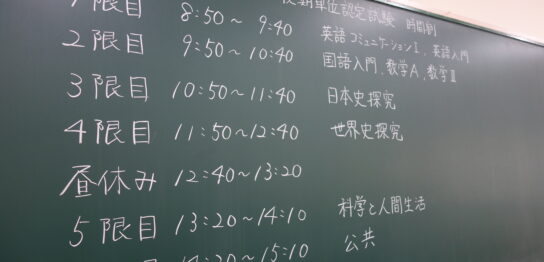 後期単位認定試験 時間割
1限目 8:50～9:40 英語コミュニケーションI、英語入門
2限目 9:50～10:40 国語入門、数学A、数学II
3限目 10:50～11:40 日本史探究
4限目 11:50～12:40 世界史探究
昼休み 12:40～13:20
5限目 13:20～14:10 科学と人間生活
14:20～15:10 公共